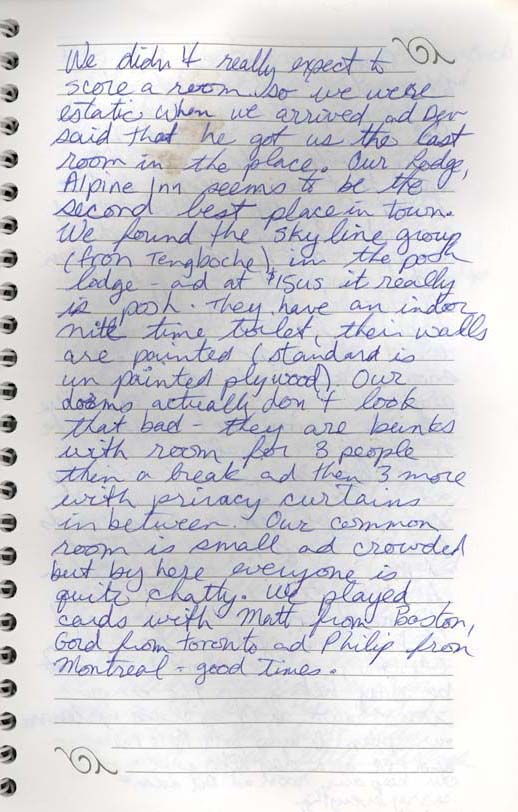 We didn't really expect to
score a room so we were
estatic when we arrived ad Dev
said that he got us the last
room in the place. Our Lodge,
Alpine Inn seems to be the
second best place in town.
We found the skyline group
(fron Tengboche) in the posh
lodge - ad at $15us it really
is posh. They have an indoor
nite time toilet, their walls
are painted (standard is
un painted plywood). Our
dorms actually don't look
that bad - they are bunks
with room for 3 people
then a break ad then 3 more
with privacy curtains
in between. Our common
room is small ad crowded
but by here everyone is
quite chatty. We played
cards with Matt from Boston,
Gord from Toronto ad Philip fron
Montreal - good times.